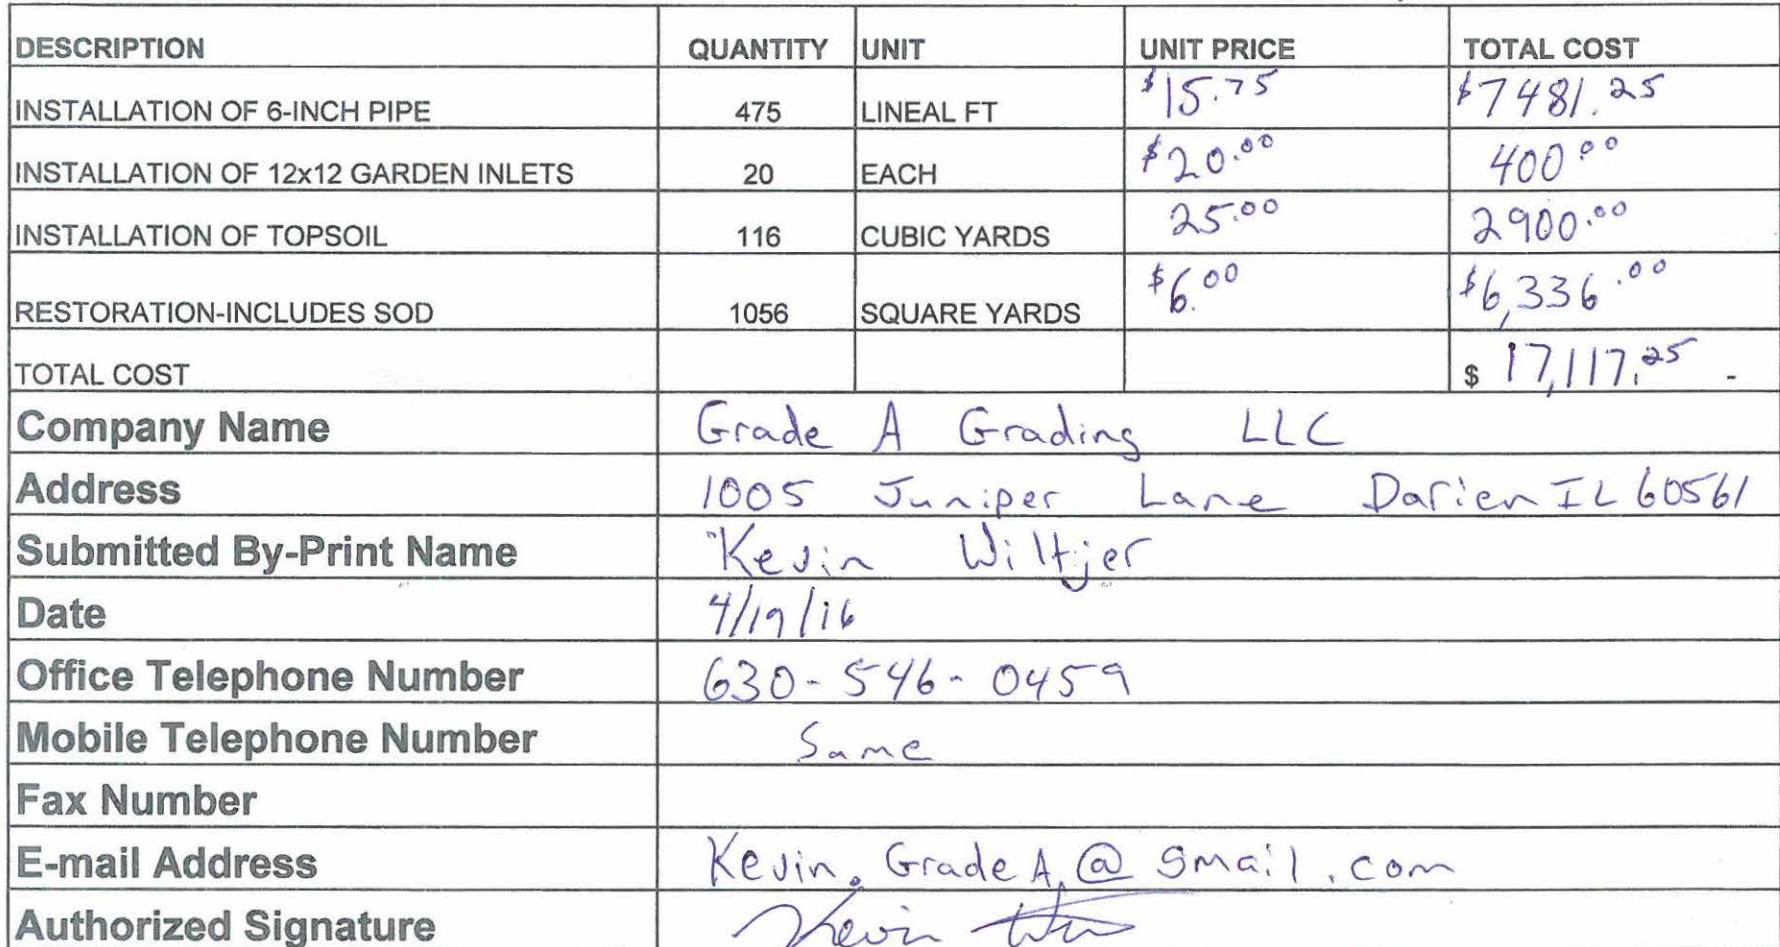 DESCRIPTION QUANTITY UNIT UNIT PRICE TOTAL COST
INSTALLATION OF 6-INCH PIPE 475 LINEAL FT $15.75 $7481.25
INSTALLATION OF 12x12 GARDEN INLETS 20 EACH $20.00 400 00
INSTALLATION OF TOPSOIL 116 CUBIC YARDS 25.00 2900.00
RESTORATION-INCLUDES SOD 1056 SQUARE YARDS $6.00 $6,336.00
TOTAL COST $ 17,117.25 -
Company Name Grade A Grading LLC
Address 1005 Juniper Lane Darien IL 60561
Submitted By-Print Name Kevin Wiltjer
Date 4/19/16
Office Telephone Number 630-546-0459
Mobile Telephone Number Same
Fax Number
E-mail Address Kevin.GradeA@gmail.com
Authorized Signature Kevin